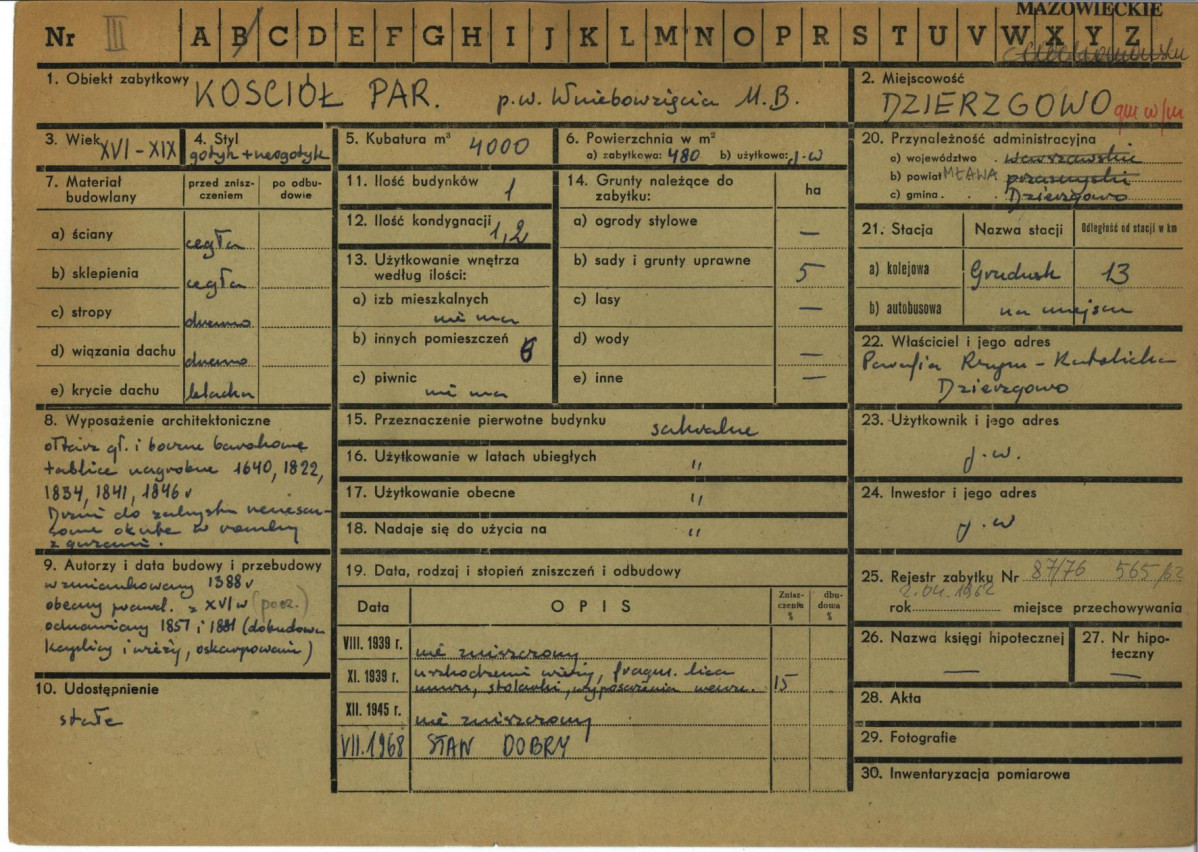 MAZOWIECKIE
Nr III A B C D E F G H I J K L M N O P R S T U V W X Y Z
1. Obiekt zabytkowy KOSCIÓŁ PAR. p.w. Wniebowzięcia M.B.
2. Miejscowość
DZIERZGOWO gm w/m
3. Wiek XVI - XIX
4. Styl
gotyk + neogotyk
5. Kubatura m³ 4000
6. Powierzchnia w m²
a) zabytkowa: 480 b) użytkowa: j.w
7. Materiał budowlany
przed zniszczeniem
po odbudowie
a) ściany cegła
b) sklepienia cegła
c) stropy drewno
d) wiązania dachu drewno
e) krycie dachu blacha
8. Wyposażenie architektoniczne
ołtarz gł. i boczne barokowe
tablice nagrobne 1640, 1822,
1834, 1841, 1846 r
Drzwi do zakrystii renesan-
sowe okute w romby
z guzami.
9. Autorzy i data budowy i przebudowy
wzmiankowany 1388 r
obecny powst. z XVI w (pocz.)
odnawiany 1857 i 1881 (dobudowa
kaplicy i wieży, oskarpowanie)
10. Udostępnienie
stałe
11. Ilość budynków 1
12. Ilość kondygnacji 1,2
13. Użytkowanie wnętrza
według ilości:
a) izb mieszkalnych
nie ma
b) innych pomieszczeń 6
c) piwnic
nie ma
14. Grunty należące do
zabytku:
ha
a) ogrody stylowe —
b) sady i grunty uprawne 5
c) lasy —
d) wody —
e) inne —
15. Przeznaczenie pierwotne budynku sakralne
16. Użytkowanie w latach ubiegłych "
17. Użytkowanie obecne "
18. Nadaje się do użycia na "
19. Data, rodzaj i stopień zniszczeń i odbudowy
Data
OPIS
Znisz-
czenia
%
dbu-
dowa
%
VIII. 1939 r. nie zniszczony
XI. 1939 r. uszkodzenia wieży, fragm. lica
muru, stolarki, wyposażenia wewn. 15
XII. 1945 r. nie zniszczony
VII.1968 STAN DOBRY
20. Przynależność administracyjna
a) województwo . warszawskie
b) powiat MŁAWA przasnyski
c) gmina . . . Dzierzgowo
21. Stacja
Nazwa stacji
Odległość od stacji w km
a) kolejowa Grudusk 13
b) autobusowa na miejscu
22. Właściciel i jego adres
Parafia Rzym - Katolicka
Dzierzgowo
23. Użytkownik i jego adres
j.w.
24. Inwestor i jego adres
j.w
25. Rejestr zabytku Nr 87/76 565/62
2.04.1962
rok miejsce przechowywania
26. Nazwa księgi hipotecznej
—
27. Nr hipo-
teczny
—
28. Akta
29. Fotografie
30. Inwentaryzacja pomiarowa